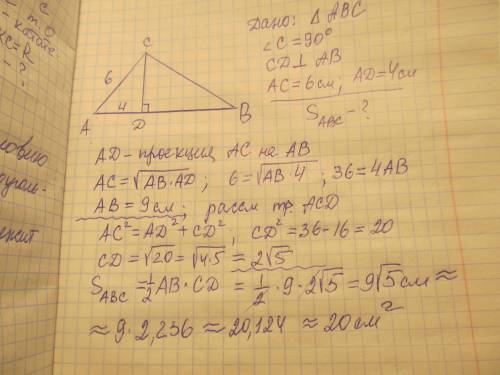 Дано: △ ABC
∠C=90°
CD⊥AB
AC=6см; AD=4см
S_ABC - ?
C
6
4
A
D
B
AD - проекция AC на AB
AC=√AB·AD; 6=√AB·4; 36=4AB
AB=9см; рассм тр. ACD
AC²=AD²+CD²; CD²=36-16=20
CD=√20=√4·5=2√5
S_ABC=1/2AB·CD=1/2·9·2√5=9√5см≈
≈9·2,236≈20,124≈20см²